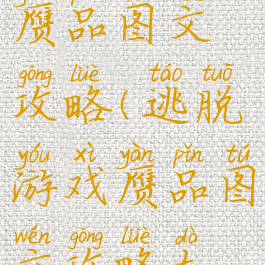 赝品图文
gōng lüè táo tuō
攻略(逃脱
yóu xì yàn pǐn tú
游戏赝品图
wén gōng lüè dà
文攻略大